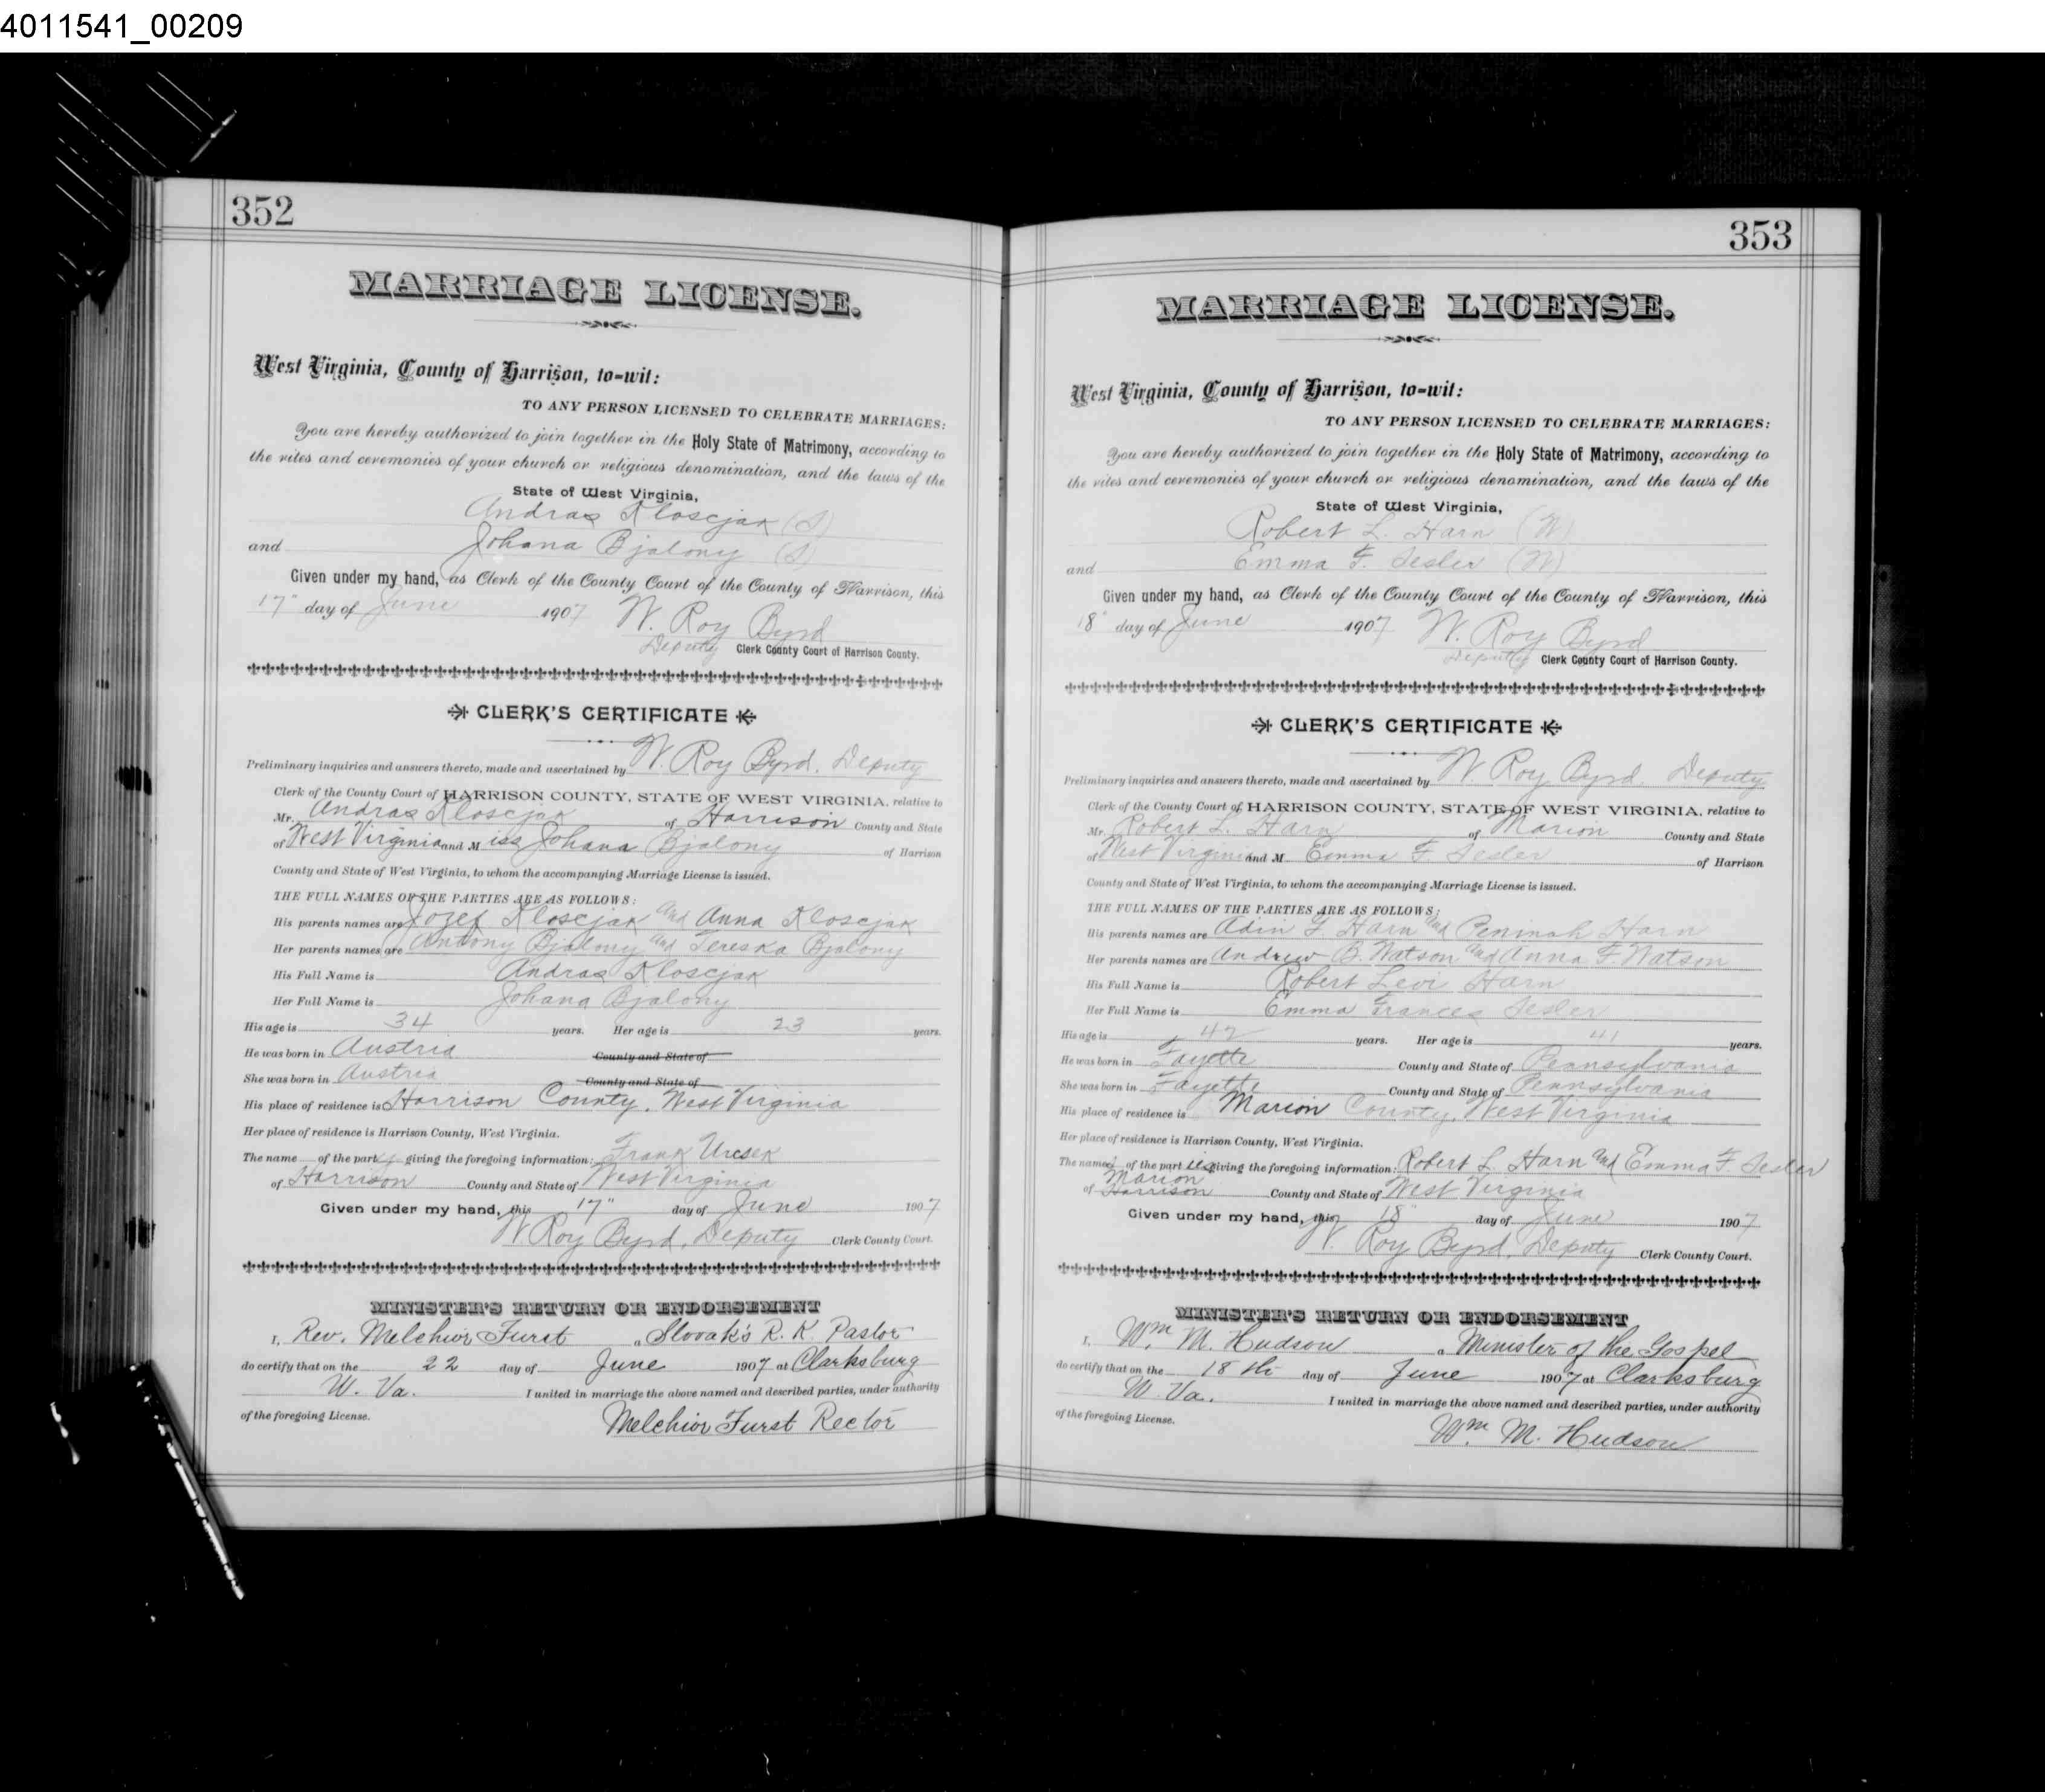 4011541_00209
352
MARRIAGE LICENSE.
West Virginia, County of Harrison, to-wit:
TO ANY PERSON LICENSED TO CELEBRATE MARRIAGES:
You are hereby authorized to join together in the Holy State of Matrimony, according to
the rites and ceremonies of your church or religious denomination, and the laws of the
State of West Virginia,
Andras Kloscjak (S)
and Johana Bjalony (S)
Given under my hand, as Clerk of the County Court of the County of Harrison, this
17" day of June 1907 W. Roy Byrd
Deputy Clerk County Court of Harrison County.
CLERK'S CERTIFICATE
Preliminary inquiries and answers thereto, made and ascertained by W. Roy Byrd, Deputy
Clerk of the County Court of HARRISON COUNTY, STATE OF WEST VIRGINIA, relative to
Mr. Andras Kloscjak of Harrison County and State
of West Virginia and Miss Johana Bjalony of Harrison
County and State of West Virginia, to whom the accompanying Marriage License is issued.
THE FULL NAMES OF THE PARTIES ARE AS FOLLOWS:
His parents names are Jozef Kloscjak and Anna Kloscjak
Her parents names are Antony Bjalony and Tereska Bjalony
His Full Name is Andras Kloscjak
Her Full Name is Johana Bjalony
His age is 34 years. Her age is 23 years.
He was born in Austria County and State of
She was born in Austria County and State of
His place of residence is Harrison County, West Virginia
Her place of residence is Harrison County, West Virginia.
The name of the party giving the foregoing information: Frank Urcsek
of Harrison County and State of West Virginia
Given under my hand, this 17" day of June 1907
W. Roy Byrd, Deputy Clerk County Court.
MINISTER'S RETURN OR ENDORSEMENT
I, Rev. Melchior Furst a Slovak's R. K. Pastor
do certify that on the 22 day of June 1907 at Clarksburg
W. Va. I united in marriage the above named and described parties, under authority
of the foregoing License. Melchior Furst Rector
353
MARRIAGE LICENSE.
West Virginia, County of Harrison, to-wit:
TO ANY PERSON LICENSED TO CELEBRATE MARRIAGES:
You are hereby authorized to join together in the Holy State of Matrimony, according to
the rites and ceremonies of your church or religious denomination, and the laws of the
State of West Virginia,
Robert L. Harn (W)
and Emma F. Sesler (W)
Given under my hand, as Clerk of the County Court of the County of Harrison, this
18" day of June 1907 W. Roy Byrd
Deputy Clerk County Court of Harrison County.
CLERK'S CERTIFICATE
Preliminary inquiries and answers thereto, made and ascertained by W. Roy Byrd, Deputy
Clerk of the County Court of HARRISON COUNTY, STATE OF WEST VIRGINIA, relative to
Mr. Robert L. Harn of Marion County and State
of West Virginia and M Emma F. Sesler of Harrison
County and State of West Virginia, to whom the accompanying Marriage License is issued.
THE FULL NAMES OF THE PARTIES ARE AS FOLLOWS:
His parents names are Adin F. Harn and Peninah Harn
Her parents names are Andrew B. Watson and Anna F. Watson
His Full Name is Robert Levi Harn
Her Full Name is Emma Frances Sesler
His age is 42 years. Her age is 41 years.
He was born in Fayette County and State of Pennsylvania
She was born in Fayette County and State of Pennsylvania
His place of residence is Marion County, West Virginia
Her place of residence is Harrison County, West Virginia.
The names of the parties giving the foregoing information: Robert L. Harn and Emma F. Sesler
Marion
of Harrison County and State of West Virginia
Given under my hand, this 18" day of June 1907
W. Roy Byrd, Deputy Clerk County Court.
MINISTER'S RETURN OR ENDORSEMENT
I, Wm. M. Hudson a Minister of the Gospel
do certify that on the 18th day of June 1907 at Clarksburg
W. Va. I united in marriage the above named and described parties, under authority
of the foregoing License. Wm. M. Hudson